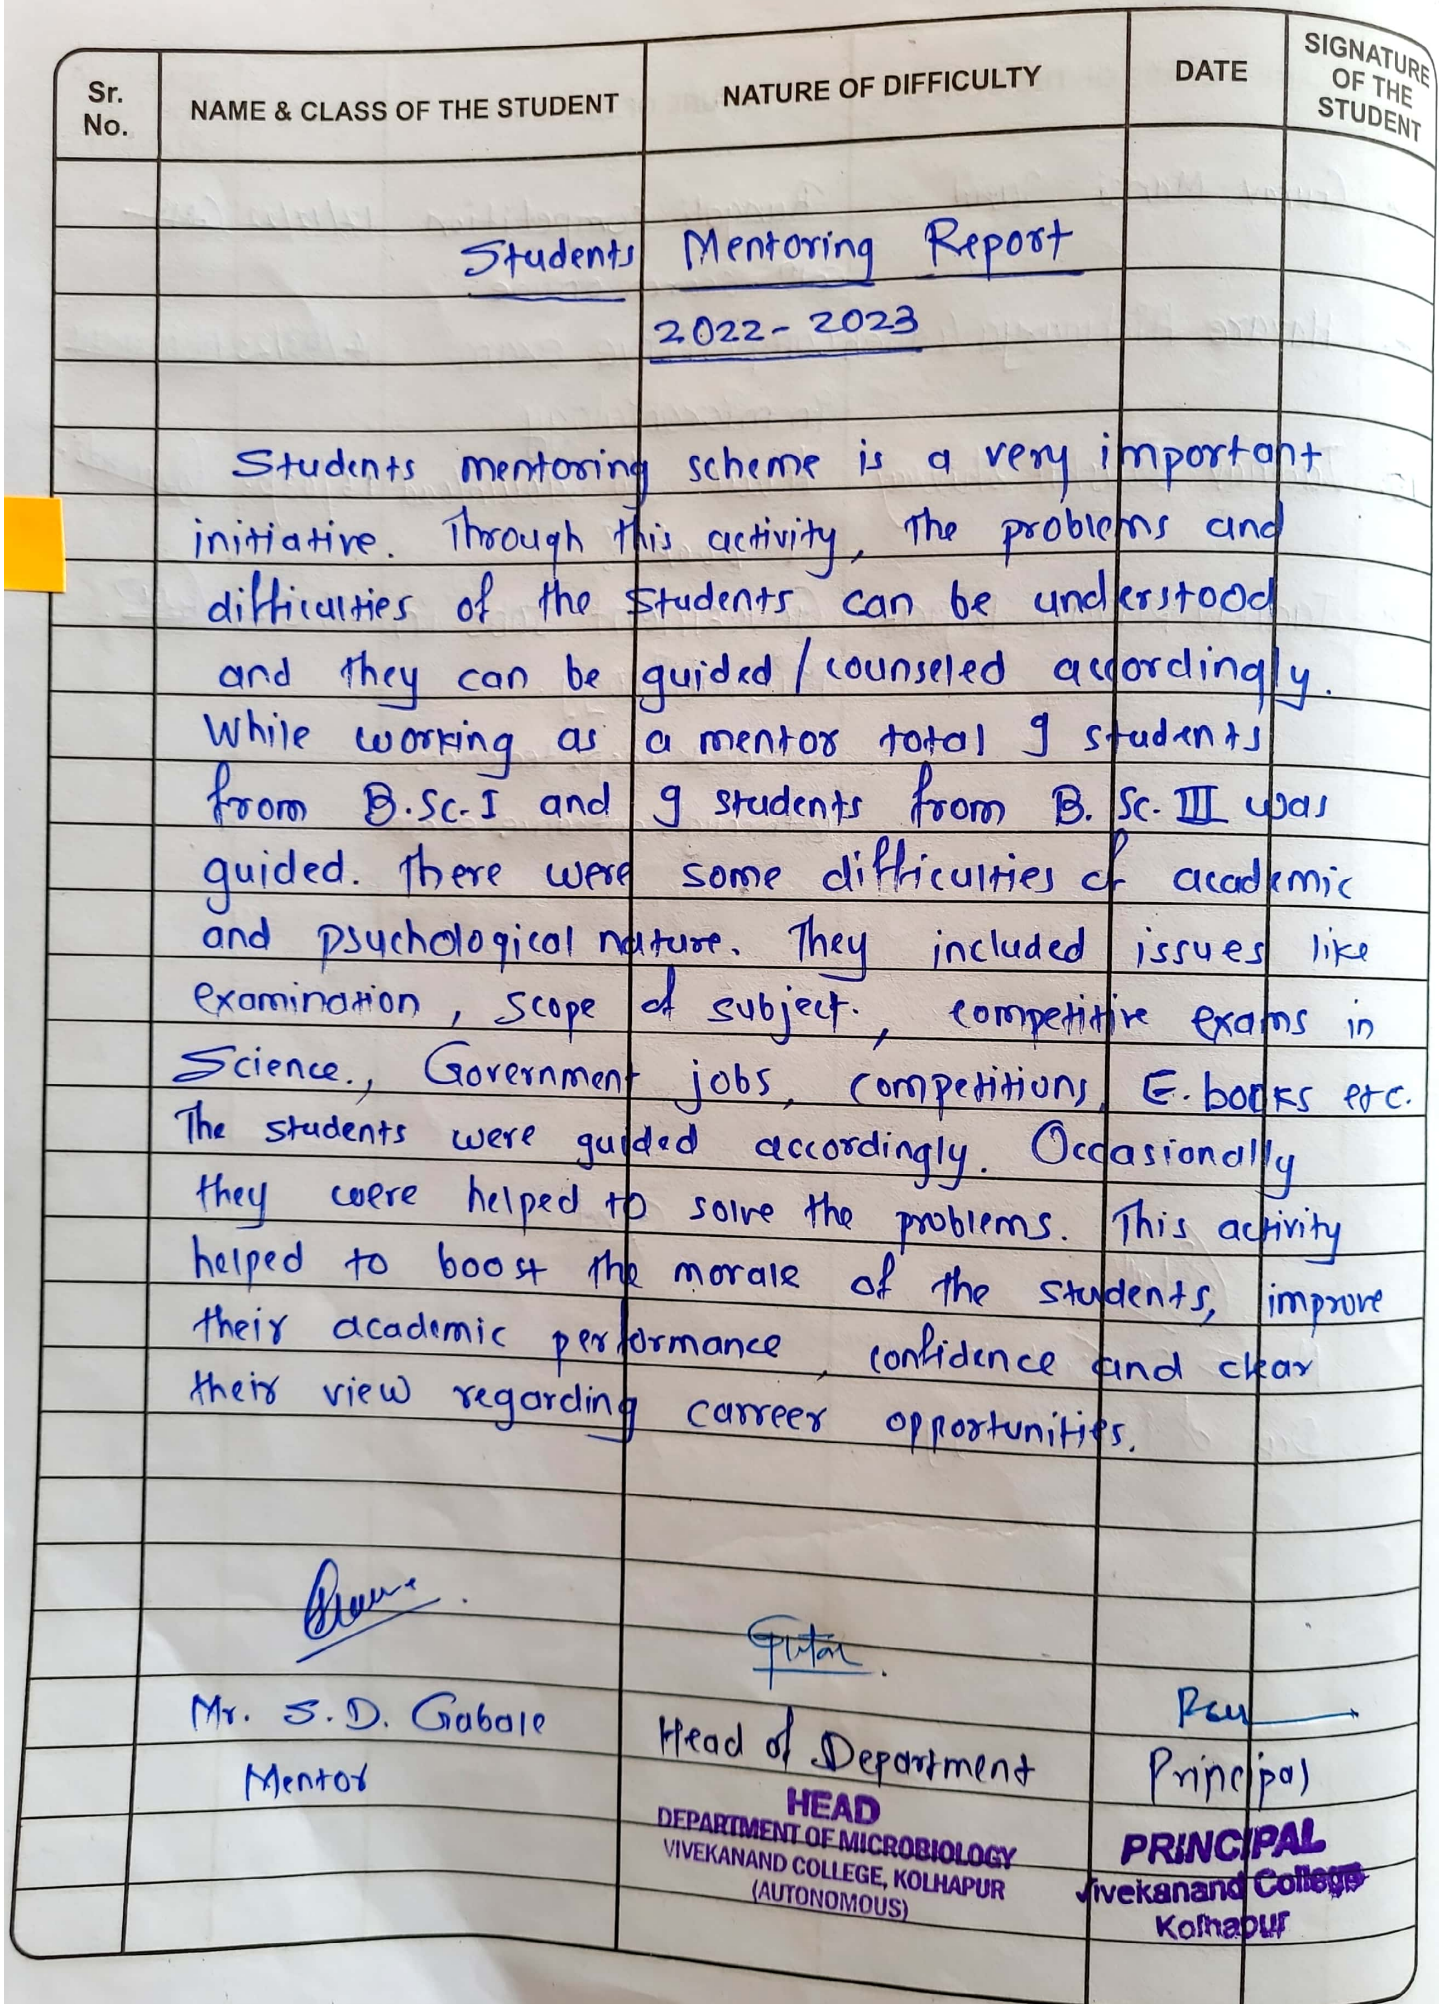 Sr. No.
NAME & CLASS OF THE STUDENT
NATURE OF DIFFICULTY
DATE
SIGNATURE OF THE STUDENT
Students Mentoring Report
2022-2023
Students mentoring scheme is a very important
initiative. Through this activity, the problems and
difficulties of the students can be understood
and they can be guided / counseled accordingly.
While working as a mentor total 9 students
from B.Sc.I and 9 students from B. Sc. III was
guided. There were some difficulties of academic
and psychological nature. They included issues like
examination, scope of subject., competitive exams in
Science., Government jobs, competitions, E. books etc.
The students were guided accordingly. Occasionally
they were helped to solve the problems. This activity
helped to boost the morale of the students, improve
their academic performance, confidence and clear
their view regarding carreer opportunities.
Mr. S. D. Gabale
Mentor
Head of Department
HEAD
DEPARTMENT OF MICROBIOLOGY
VIVEKANAND COLLEGE, KOLHAPUR
(AUTONOMOUS)
Principal
PRINCIPAL
Vivekanand College
Kolhapur